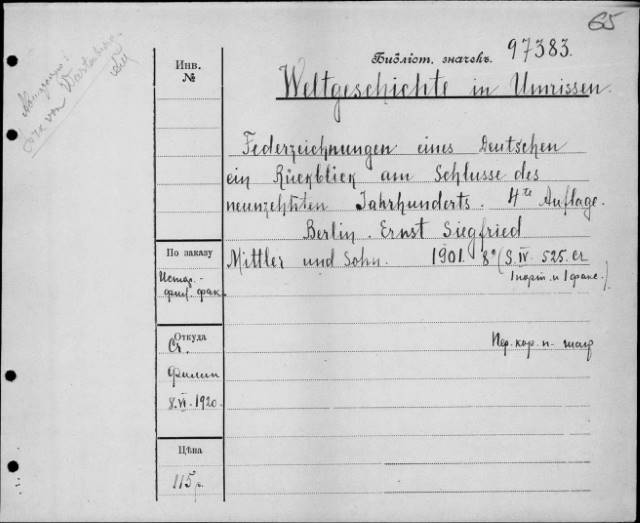 65
Библіот. значекъ. 97383.
Инв.
№
Weltgeschichte in Umrissen.
Federzeichnungen eines Deutschen
ein Rückblick am Schlusse des
neunzehnten Jahrhunderts. 4te Auflage.
Berlin. Ernst Siegfried
Mittler und Sohn. 1901. 8° (S. IV. 525. ст
1 порт. и 1 факс.)
По заказу
Истор.-
фил. фак.
Откуда
Ст.
Филип
8.VI.1920.
Пер. кор. п.
Цѣна
115 р.